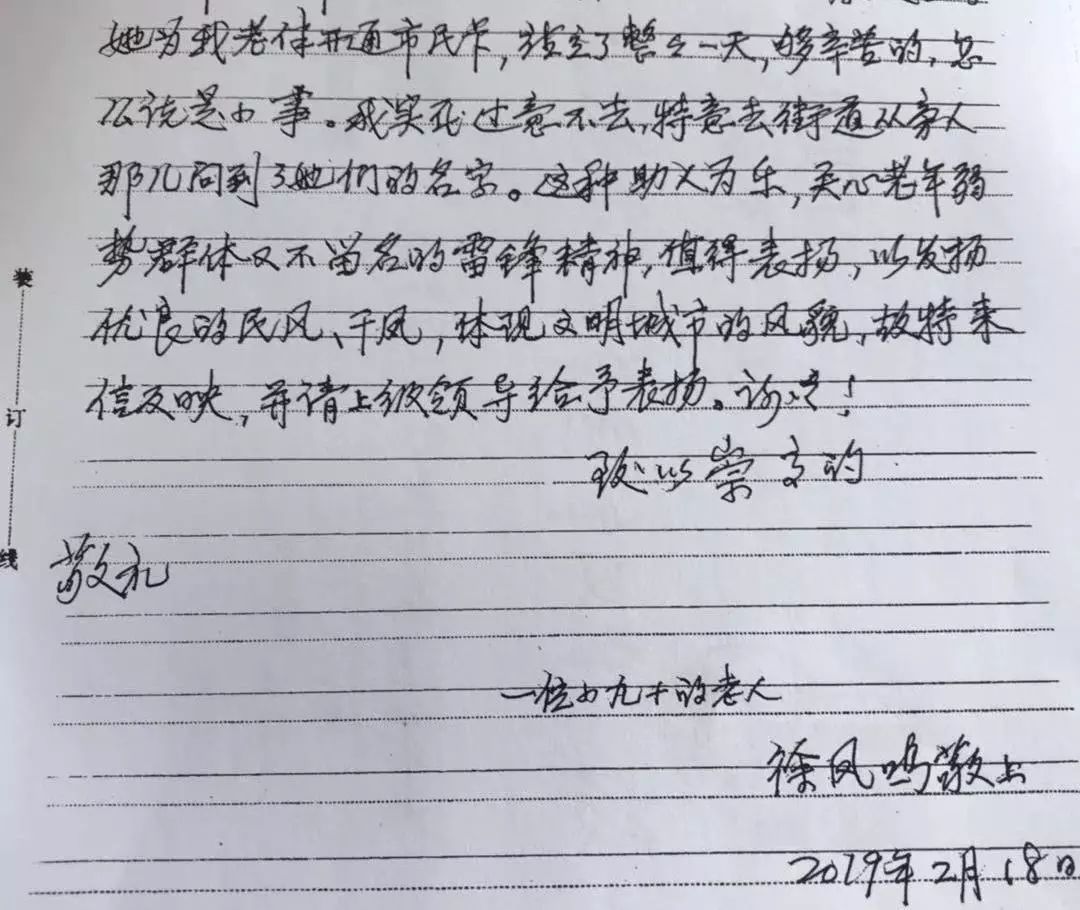 她为我老伴开通市民卡，花了整整一天，够辛苦的，怎
么说是小事。我实在过意不去，特意去街道从旁人
那儿问到了她们的名字。这种助人为乐，关心老年弱
势群体又不留名的雷锋精神，值得表扬，以发扬
优良的民风、干风，体现文明城市的风貌，故特来
信反映，并请上级领导给予表扬。谢谢！
致以崇高的
敬礼
一位小九十的老人
徐凤鸣敬上
2019年2月18日
装
订
线